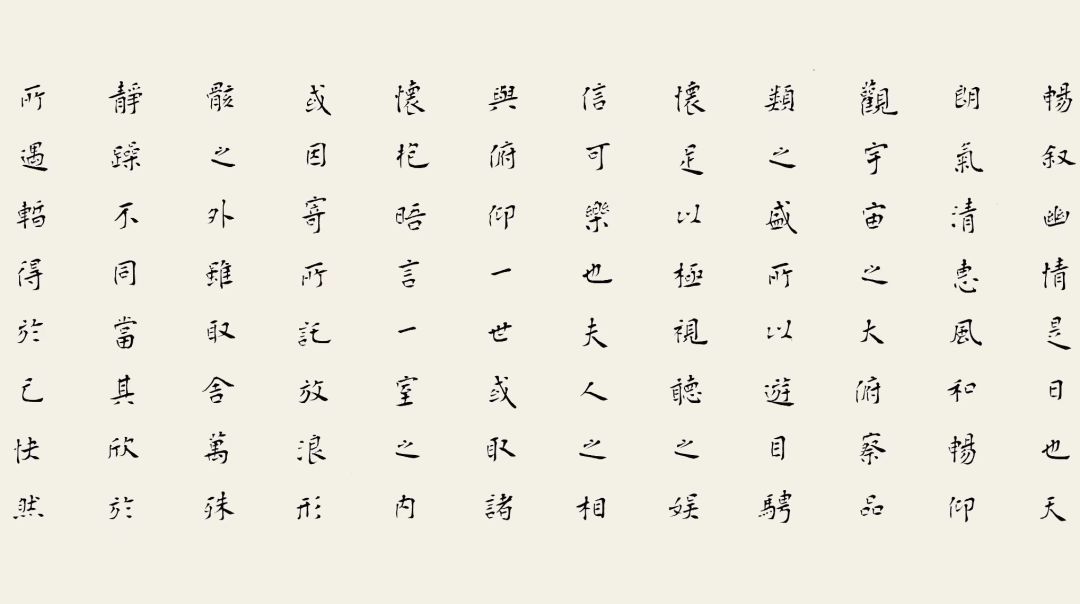 暢叙幽情是日也天
朗氣清惠風和暢仰
觀宇宙之大俯察品
類之盛所以遊目騁
懷足以極視聽之娱
信可樂也夫人之相
與俯仰一世或取諸
懷抱晤言一室之内
或因寄所託放浪形
骸之外雖取舍萬殊
靜躁不同當其欣於
所遇暫得於己快然